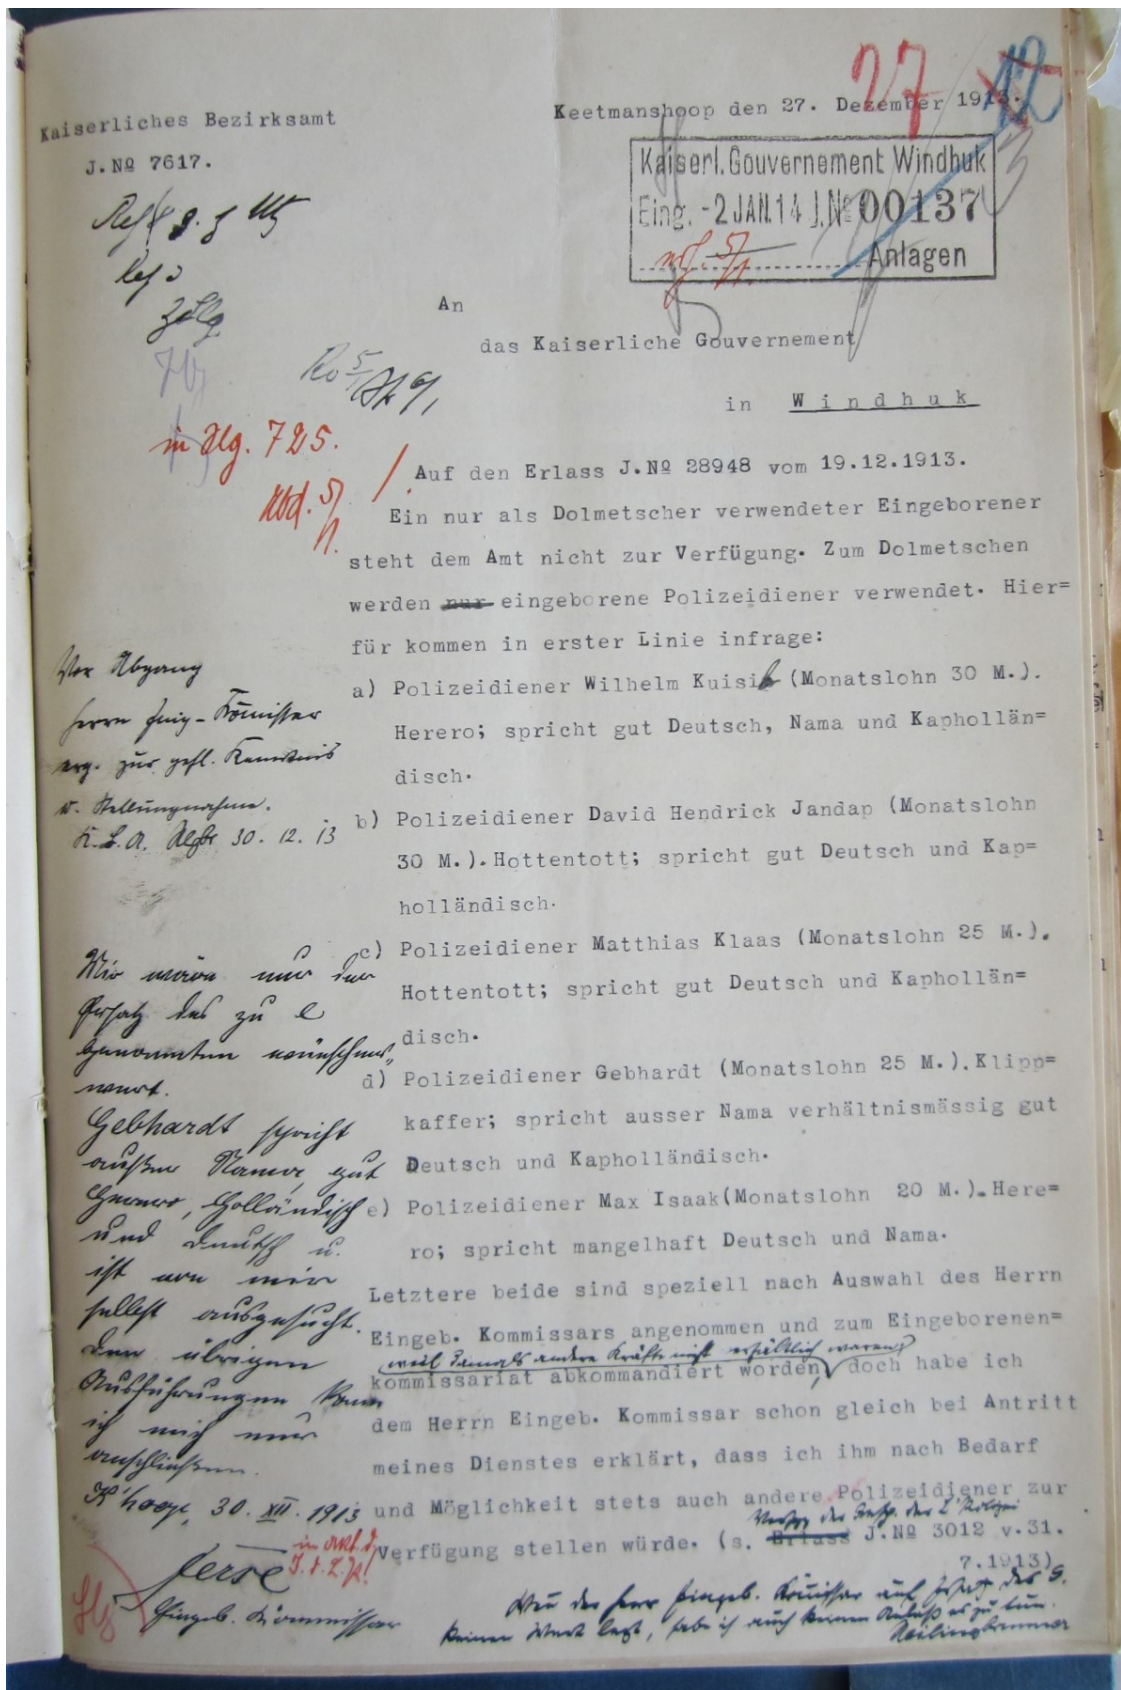 27
Kaiserliches Bezirksamt
Keetmanshoop den 27. Dezember 1913.
J.No 7617.
Kaiserl. Gouvernement Windhuk
Eing. -2 JAN. 14 J.No 00137
Anlagen
An
das Kaiserliche Gouvernement
in Windhuk
725.
Auf den Erlass J.No 28948 vom 19.12.1913.
Ein nur als Dolmetscher verwendeter Eingeborener
steht dem Amt nicht zur Verfügung. Zum Dolmetschen
werden nur eingeborene Polizeidiener verwendet. Hier=
für kommen in erster Linie infrage:
a) Polizeidiener Wilhelm Kuisib (Monatslohn 30 M.).
Herero; spricht gut Deutsch, Nama und Kaphollän=
disch.
b) Polizeidiener David Hendrick Jandap (Monatslohn
30 M.). Hottentott; spricht gut Deutsch und Kap=
holländisch.
c) Polizeidiener Matthias Klaas (Monatslohn 25 M.).
Hottentott; spricht gut Deutsch und Kaphollän=
disch.
d) Polizeidiener Gebhardt (Monatslohn 25 M.). Klipp=
kaffer; spricht ausser Nama verhältnismässig gut
Deutsch und Kapholländisch.
e) Polizeidiener Max Isaak (Monatslohn 20 M.). Here=
ro; spricht mangelhaft Deutsch und Nama.
Letztere beide sind speziell nach Auswahl des Herrn
Eingeb. Kommissars angenommen und zum Eingeborenen=
weil damals andere Kräfte nicht erhältlich waren,
kommissariat abkommandiert worden, doch habe ich
dem Herrn Eingeb. Kommissar schon gleich bei Antritt
meines Dienstes erklärt, dass ich ihm nach Bedarf
und Möglichkeit stets auch andere Polizeidiener zur
Verfügung stellen würde. (s. Erlass J.No 3012 v.31.
7.1913)
Wenn der Herr Eingeb. Kommissar auf Ersatz des G.
keinen Wert legt, habe ich auch keinen Anlaß es zu tun.
Vor Abgang
Herrn Eing-Kommissar
erg. zur gefl. Kenntnis
u. Stellungnahme.
K.B.A. 30. 12. 13
Mir wäre nur der
Ersatz des zu e
genannten wünschens-
wert.
Gebhardt spricht
außer Nama, gut
Herero, Holländisch
und Deutsch u.
ist von mir
selbst ausgesucht.
Den übrigen
Ausführungen kann
ich mich nur
anschließen.
K'hoop, 30. XII. 1913
Eingeb. Kommissar